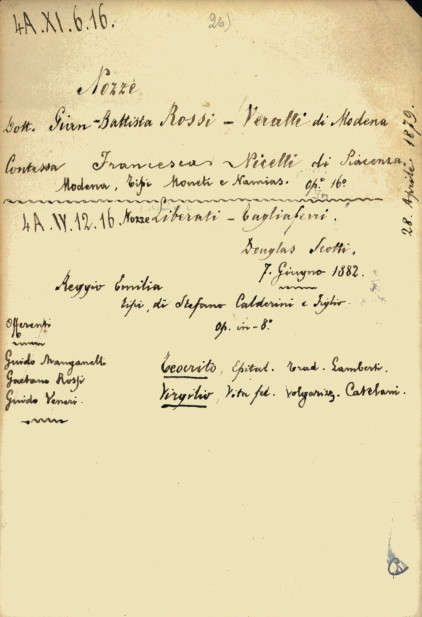 4A.XI.6.16.
26)
Nozze
Dott. Gian-Battista Rossi - Veratti di Modena
Contessa Francesca Nicelli di Piacenza,
Modena, Tipi Moneti e Namias. op.° 16°
28. Aprile 1879.
4A.IV.12.16. Nozze Liberati - Tagliaferri.
Douglas Scotti,
7. Giugno 1882.
Reggio Emilia
Tipi, di Stefano Calderini e Figlio
Op. in-8°
Offerenti
Guido Manganelli
Gaetano Rossi
Guido Veneri.
Teocrito, Epital. Trad. Lamberti.
Virgilio, Vita fel. volgarizz. Catelani.